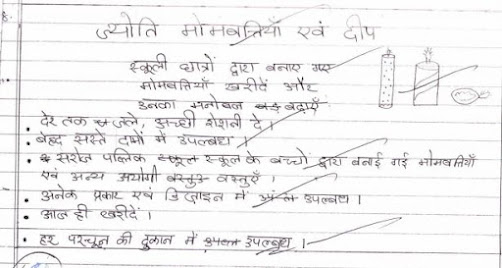 ज्योति मोमबत्तियाँ एवं दीप
स्कूली छात्रों द्वारा बनाए गए
मोमबत्तियाँ खरीदें और
उनका मनोबल बढ़ाएँ
• देर तक जले, अच्छी रोशनी दे।
• बेहद सस्ते दामों में उपलब्ध।
• सरोज पब्लिक स्कूल के बच्चों द्वारा बनाई गई मोमबत्तियाँ
एवं अन्य उपयोगी वस्तुएँ।
• अनेक प्रकार एवं डिज़ाइन में उपलब्ध।
• आज ही खरीदें।
• हर परचून की दुकान में उपलब्ध।